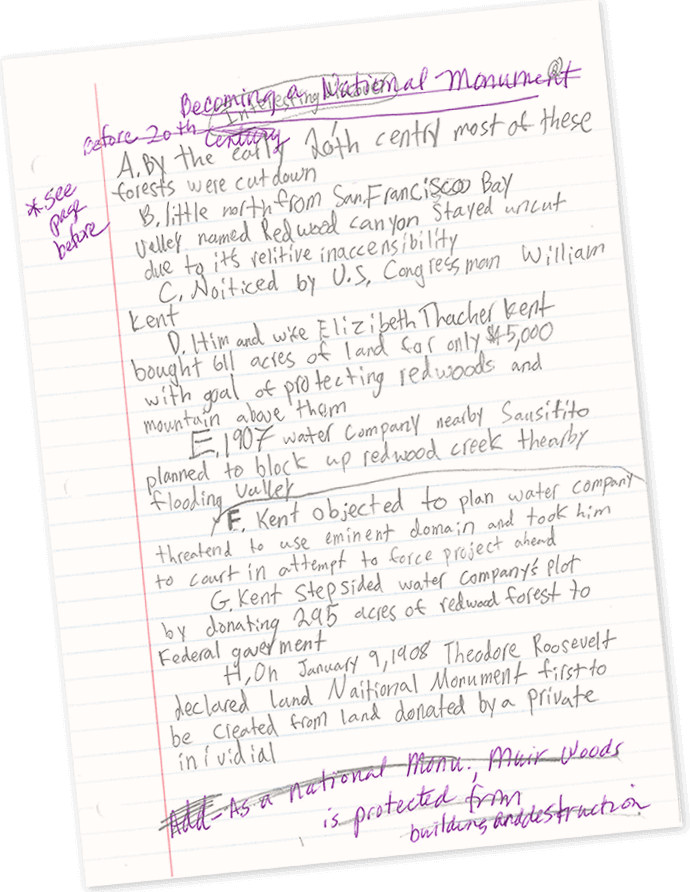 Becoming a National Monument
Interesting
Before 20th Century
A. By the early 20th centry most of these
forests were cut down
* See
page
before
B. little north from San Francisco Bay
valley named Redwood canyon stayed uncut
due to it's relitive inaccensibility
C. Noiticed by U.S. Congressman William
Kent
D. Him and wife Elizibeth Thacher Kent
bought 611 acres of land for only $45,000
with goal of protecting redwoods and
mountain above them
E. 1907 water company nearby Sausitito
planned to block up redwood creek thearby
flooding valley
F. Kent objected to plan water company
threatend to use eminent domain and took him
to court in attempt to force project ahead
G. Kent stepsided water company's plot
by donating 295 acres of redwood forest to
Federal goverment
H. On January 9, 1908 Theodore Roosevelt
declared land Naitional Monument first to
be created from land donated by a private
inividial
Add - As a national Monu., Muir Woods
is protected from
building and destruction